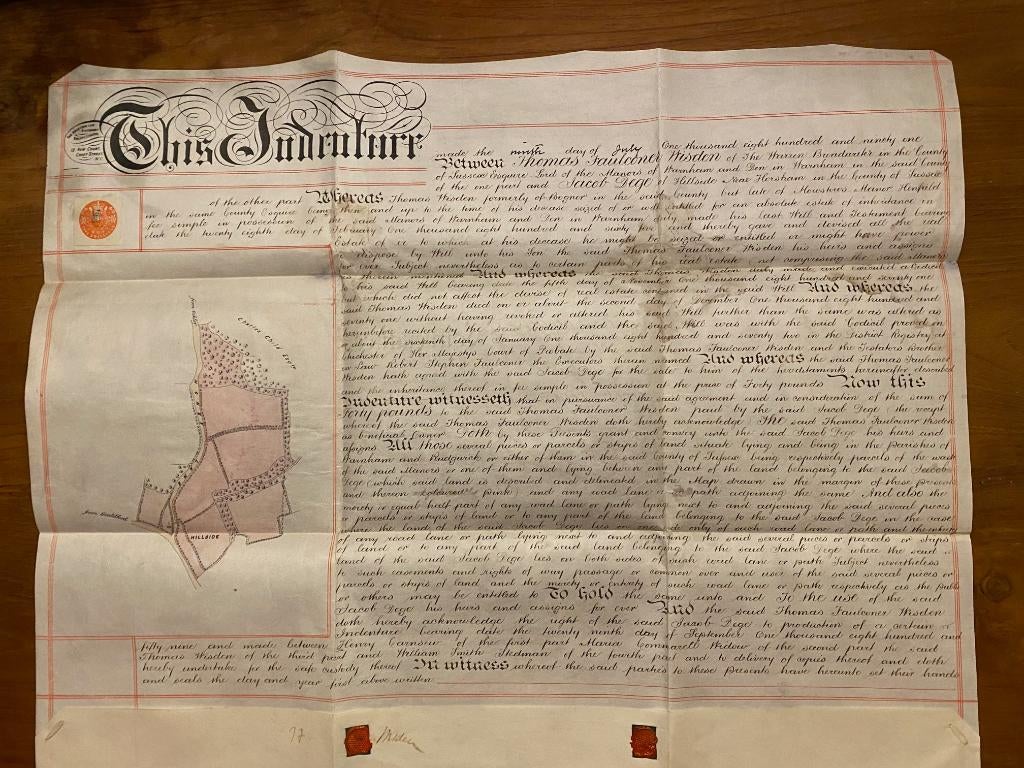 This Indenture made the ninth day of July One thousand eight hundred and ninety one
Between Thomas Faulconer Wisden of The Warren Broadwater in the County
of Sussex Esquire Lord of the Manors of Warnham and Den in Warnham in the said County
of the one part and Jacob Dege of Hillside Near Horsham in the County of Sussex
of the other part Whereas Thomas Wisden formerly of Bognor in the said County but late of Henfield
in the same County Esquire being then and up to the time of his decease seized of or well entitled for an absolute estate of inheritance in
fee simple in possession of the said Manors of Warnham and Den in Warnham duly made his last Will and Testament bearing
date the twenty eighth day of February One thousand eight hundred and sixty five and thereby gave and devised all the real
Estate of or to which at his decease he might be seized or entitled or might have power
to dispose by Will unto his Son the said Thomas Faulconer Wisden his heirs and assigns
for ever Subject nevertheless as to certain parts of his real estate not comprising the said Manors
And whereas the said Thomas Wisden duly made and executed a Codicil
to his said Will bearing date the fifth day of November One thousand eight hundred and seventy one
but which did not affect the devise of real estate contained in the said Will And whereas the
said Thomas Wisden died on or about the second day of December One thousand eight hundred and
seventy one without having revoked or altered his said Will further than the same was altered as
hereinbefore recited by the said Codicil and the said Will was with the said Codicil proved on
or about the sixteenth day of January One thousand eight hundred and seventy two in the District Registry at
Chichester of Her Majestys Court of Probate by the said Thomas Faulconer Wisden and the Testators Brother
in Law Robert Stephen Faulconer the Executors therein named And whereas the said Thomas Faulconer
Wisden hath agreed with the said Jacob Dege for the sale to him of the hereditaments hereinafter described
and the inheritance thereof in fee simple in possession at the price of Forty pounds Now this
Indenture witnesseth that in pursuance of the said agreement and in consideration of the sum of
Forty pounds to the said Thomas Faulconer Wisden paid by the said Jacob Dege (the receipt
whereof the said Thomas Faulconer Wisden doth hereby acknowledge) The said Thomas Faulconer Wisden
as beneficial Owner Doth by these Presents grant and convey unto the said Jacob Dege his heirs and
assigns All those several pieces or parcels or strips of land situate lying and being in the Parishes of
Warnham and Rudgwick or either of them in the said County of Sussex being respectively parcels of the waste
of the said Manors or one of them and lying between any part of the land belonging to the said Jacob
Dege (which said land is depicted and delineated in the Map drawn in the margin of these Presents
and thereon coloured Pink) and any road lane or path adjoining the same And also the
moiety or equal half part of any road lane or path lying next to and adjoining the said several pieces
or parcels or strips of land or to any part of the land belonging to the said Jacob Dege in the case
where the land of the said Jacob Dege lies on one side only of such road lane or path and the entirety
of any road lane or path lying next to and adjoining the said several pieces or parcels or strips
of land or to any part of the land belonging to the said Jacob Dege where the said
land of the said Jacob Dege lies on both sides of such road lane or path Subject nevertheless
to such easements and rights of way passage or common over and user of the said several pieces or
parcels or strips of land and the moiety or entirety of such road lane or path respectively as the public
or others may be entitled to To hold the same unto and To the use of the said
Jacob Dege his heirs and assigns for ever And the said Thomas Faulconer Wisden
doth hereby acknowledge the right of the said Jacob Dege to production of a certain
Indenture bearing date the twenty ninth day of September One thousand eight hundred and
fifty nine and made between Henry of the first part Maria Widow of the second part the said
Thomas Wisden of the third part and William Smith Stedman of the fourth part and to delivery of copies thereof and doth
hereby undertake for the safe custody thereof In witness whereof the said parties to these Presents have hereunto set their hands
and seals the day and year first above written
HILLSIDE
Wisden